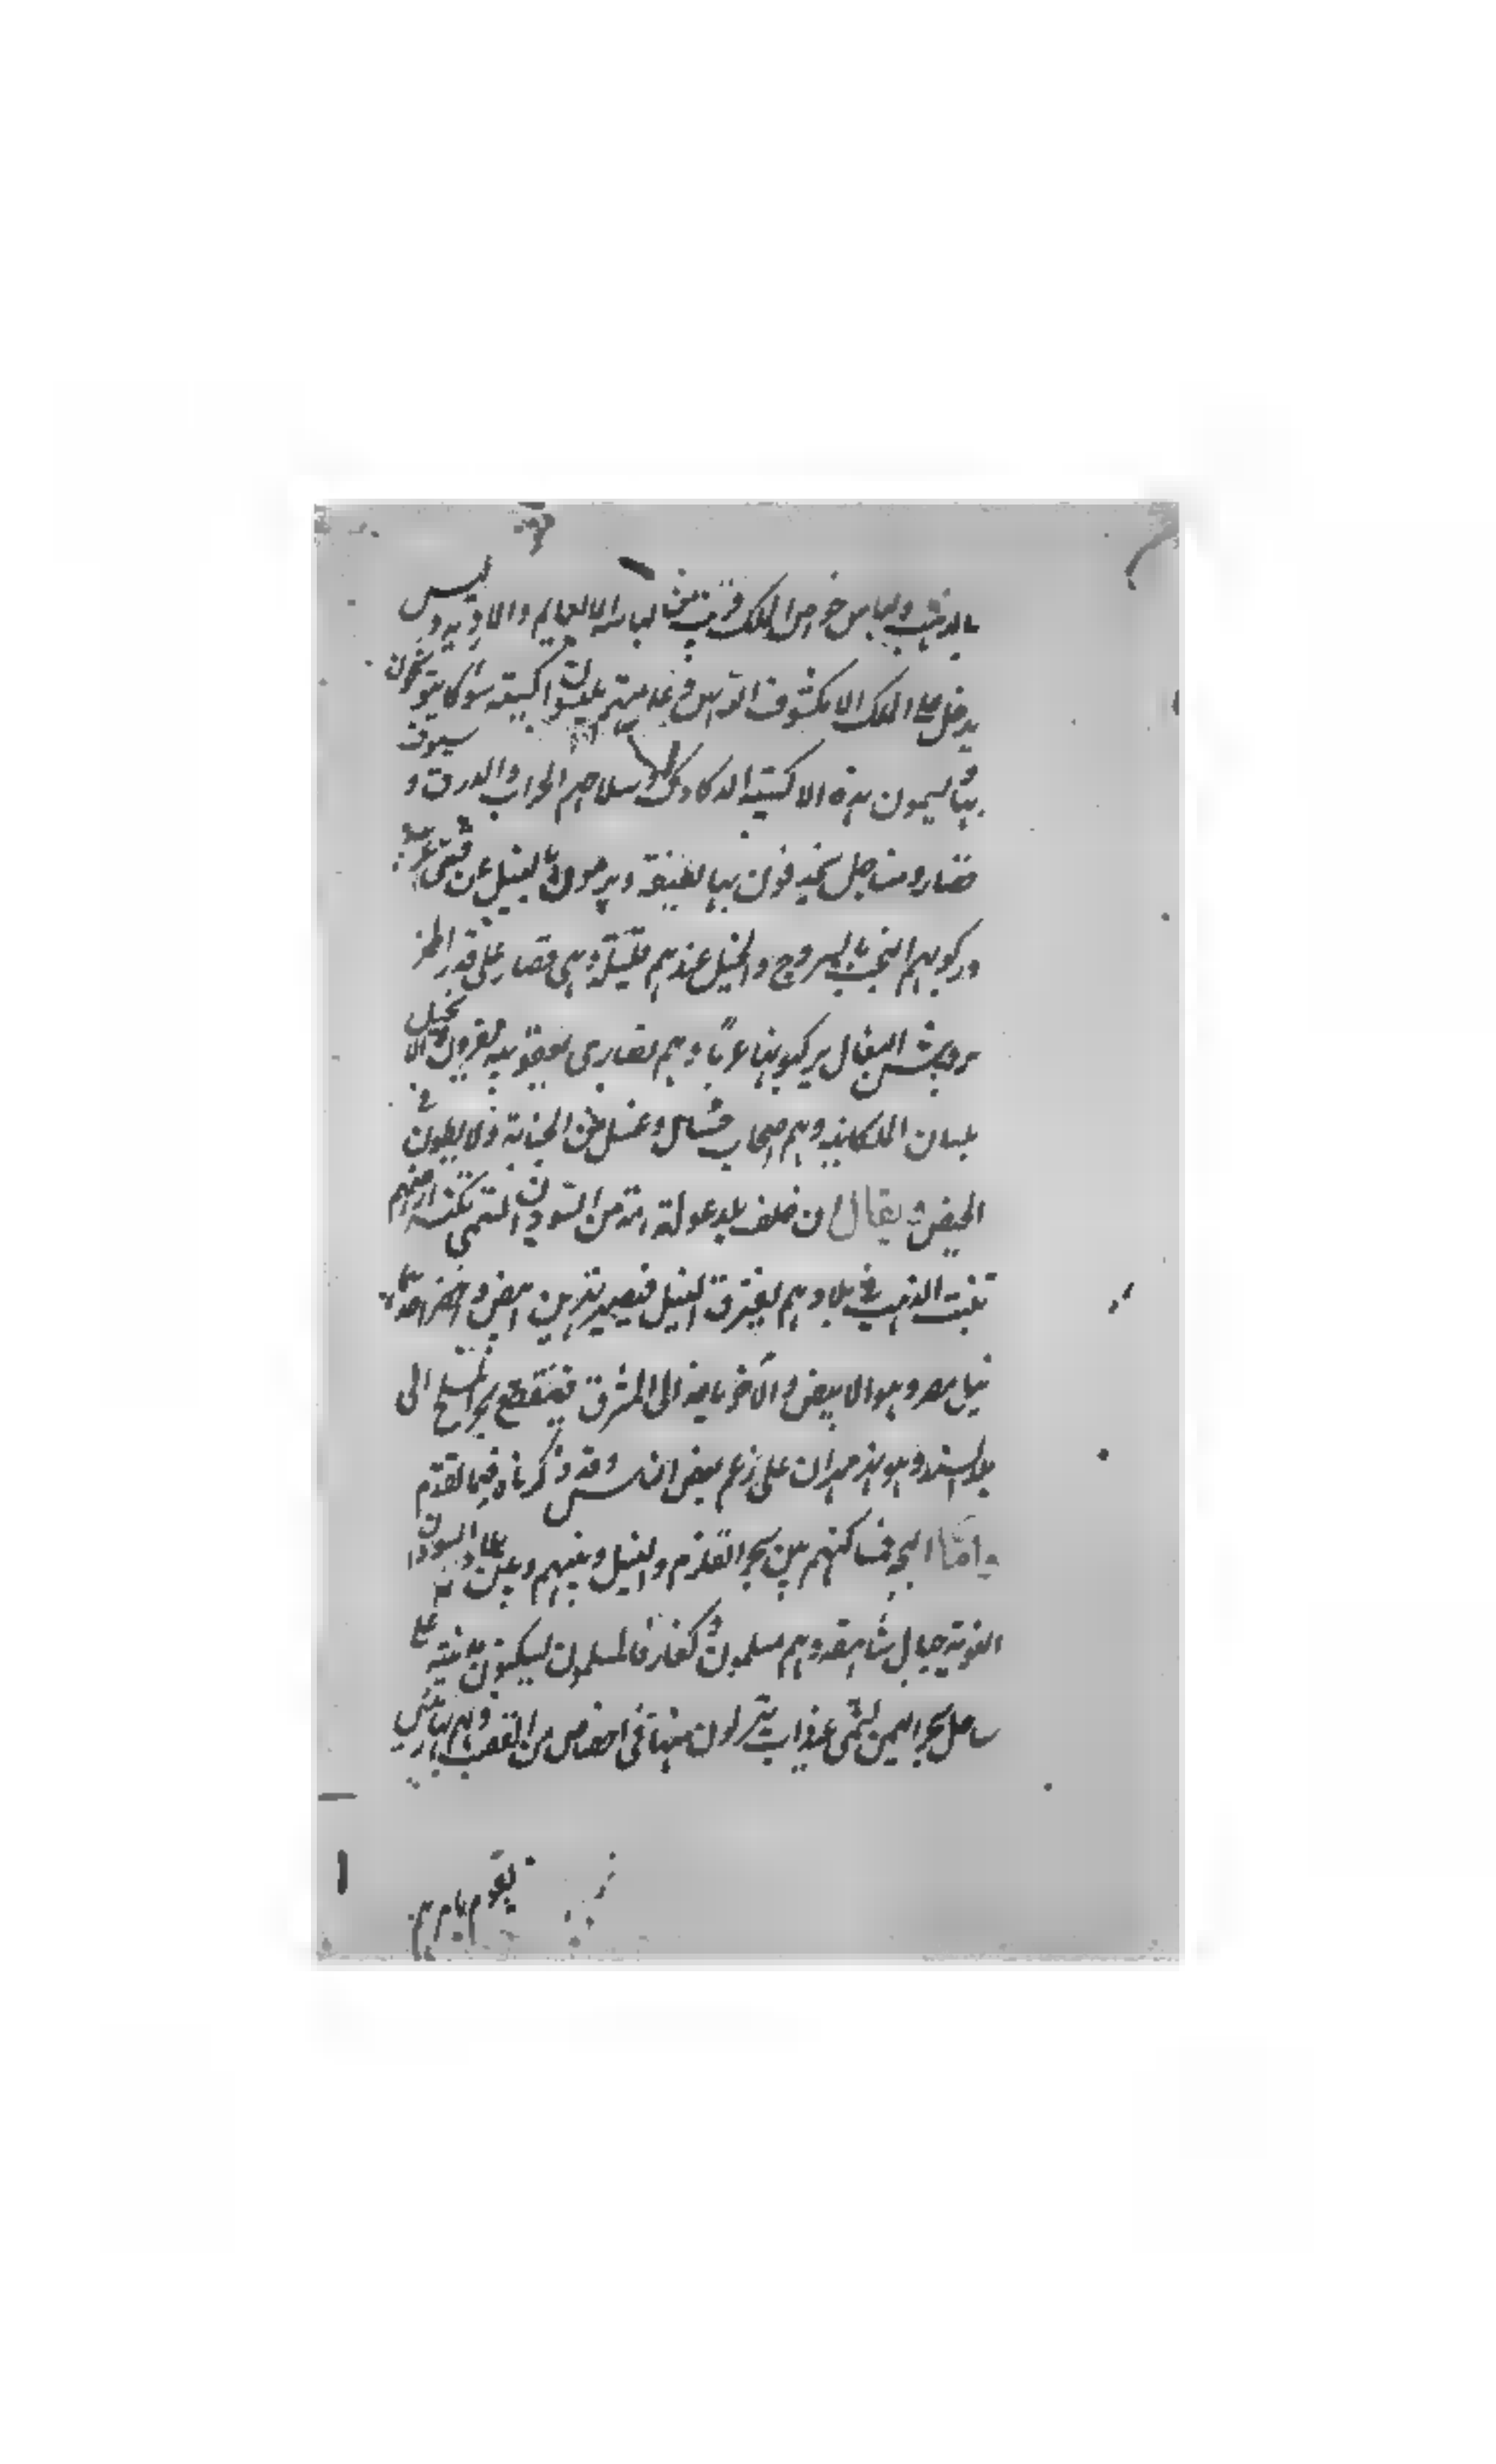 بالذهب ولباس خواص الملك قريب من لباسه الا العمايم والاردية وليس
يدخل على الملك الا مكشوف الراس وعامتهم يلبسون اكسية سوكا يتوشحون
بها ليسمون هذه الاكسية الدكاوك وسلاحهم الحراب والدرق و سيوف
قصار ومناجل يحذفون بها لطيفة ويرمون بالنبل عن قسى عربية
وركوبهم النجب بالسروج والخيل عندهم قليلة وهى قصار على قدر الحمر
البغال يركبونها عريا وهم نصارى يعقوبيه يقرون الانجيل
بلسان الملكانيه وهم اصحاب وغسل من الجنابة ولا يطون فى
الحيض ويقال ان خلف بلد علوة امة من السودان تسمى تكنه ارضهم
تنبت الذهب فى بلادهم يفترق النيل فيصير نهرين ابيض واخضر احدهما
نيل مصر وهو الابيض والآخر ياخذ الى المشرق فيقطع بحر الملح الى
بلد السند وهو نهر مهران على زعم بعض الناس وقد ذكرناه فيما تقدم
واما البجه فمساكنهم بين بحر القلزم والنيل وبينهم وبين بلاد السودان
النوبة جبال شاهقه وهم مسلمون وكفار فالمسلمون يسكنون مدينة على
ساحل بحر اليمن تسمى عيذاب ينزلون منها فى اخصاص من القصب وبها رئيس
يقوم بامرهم